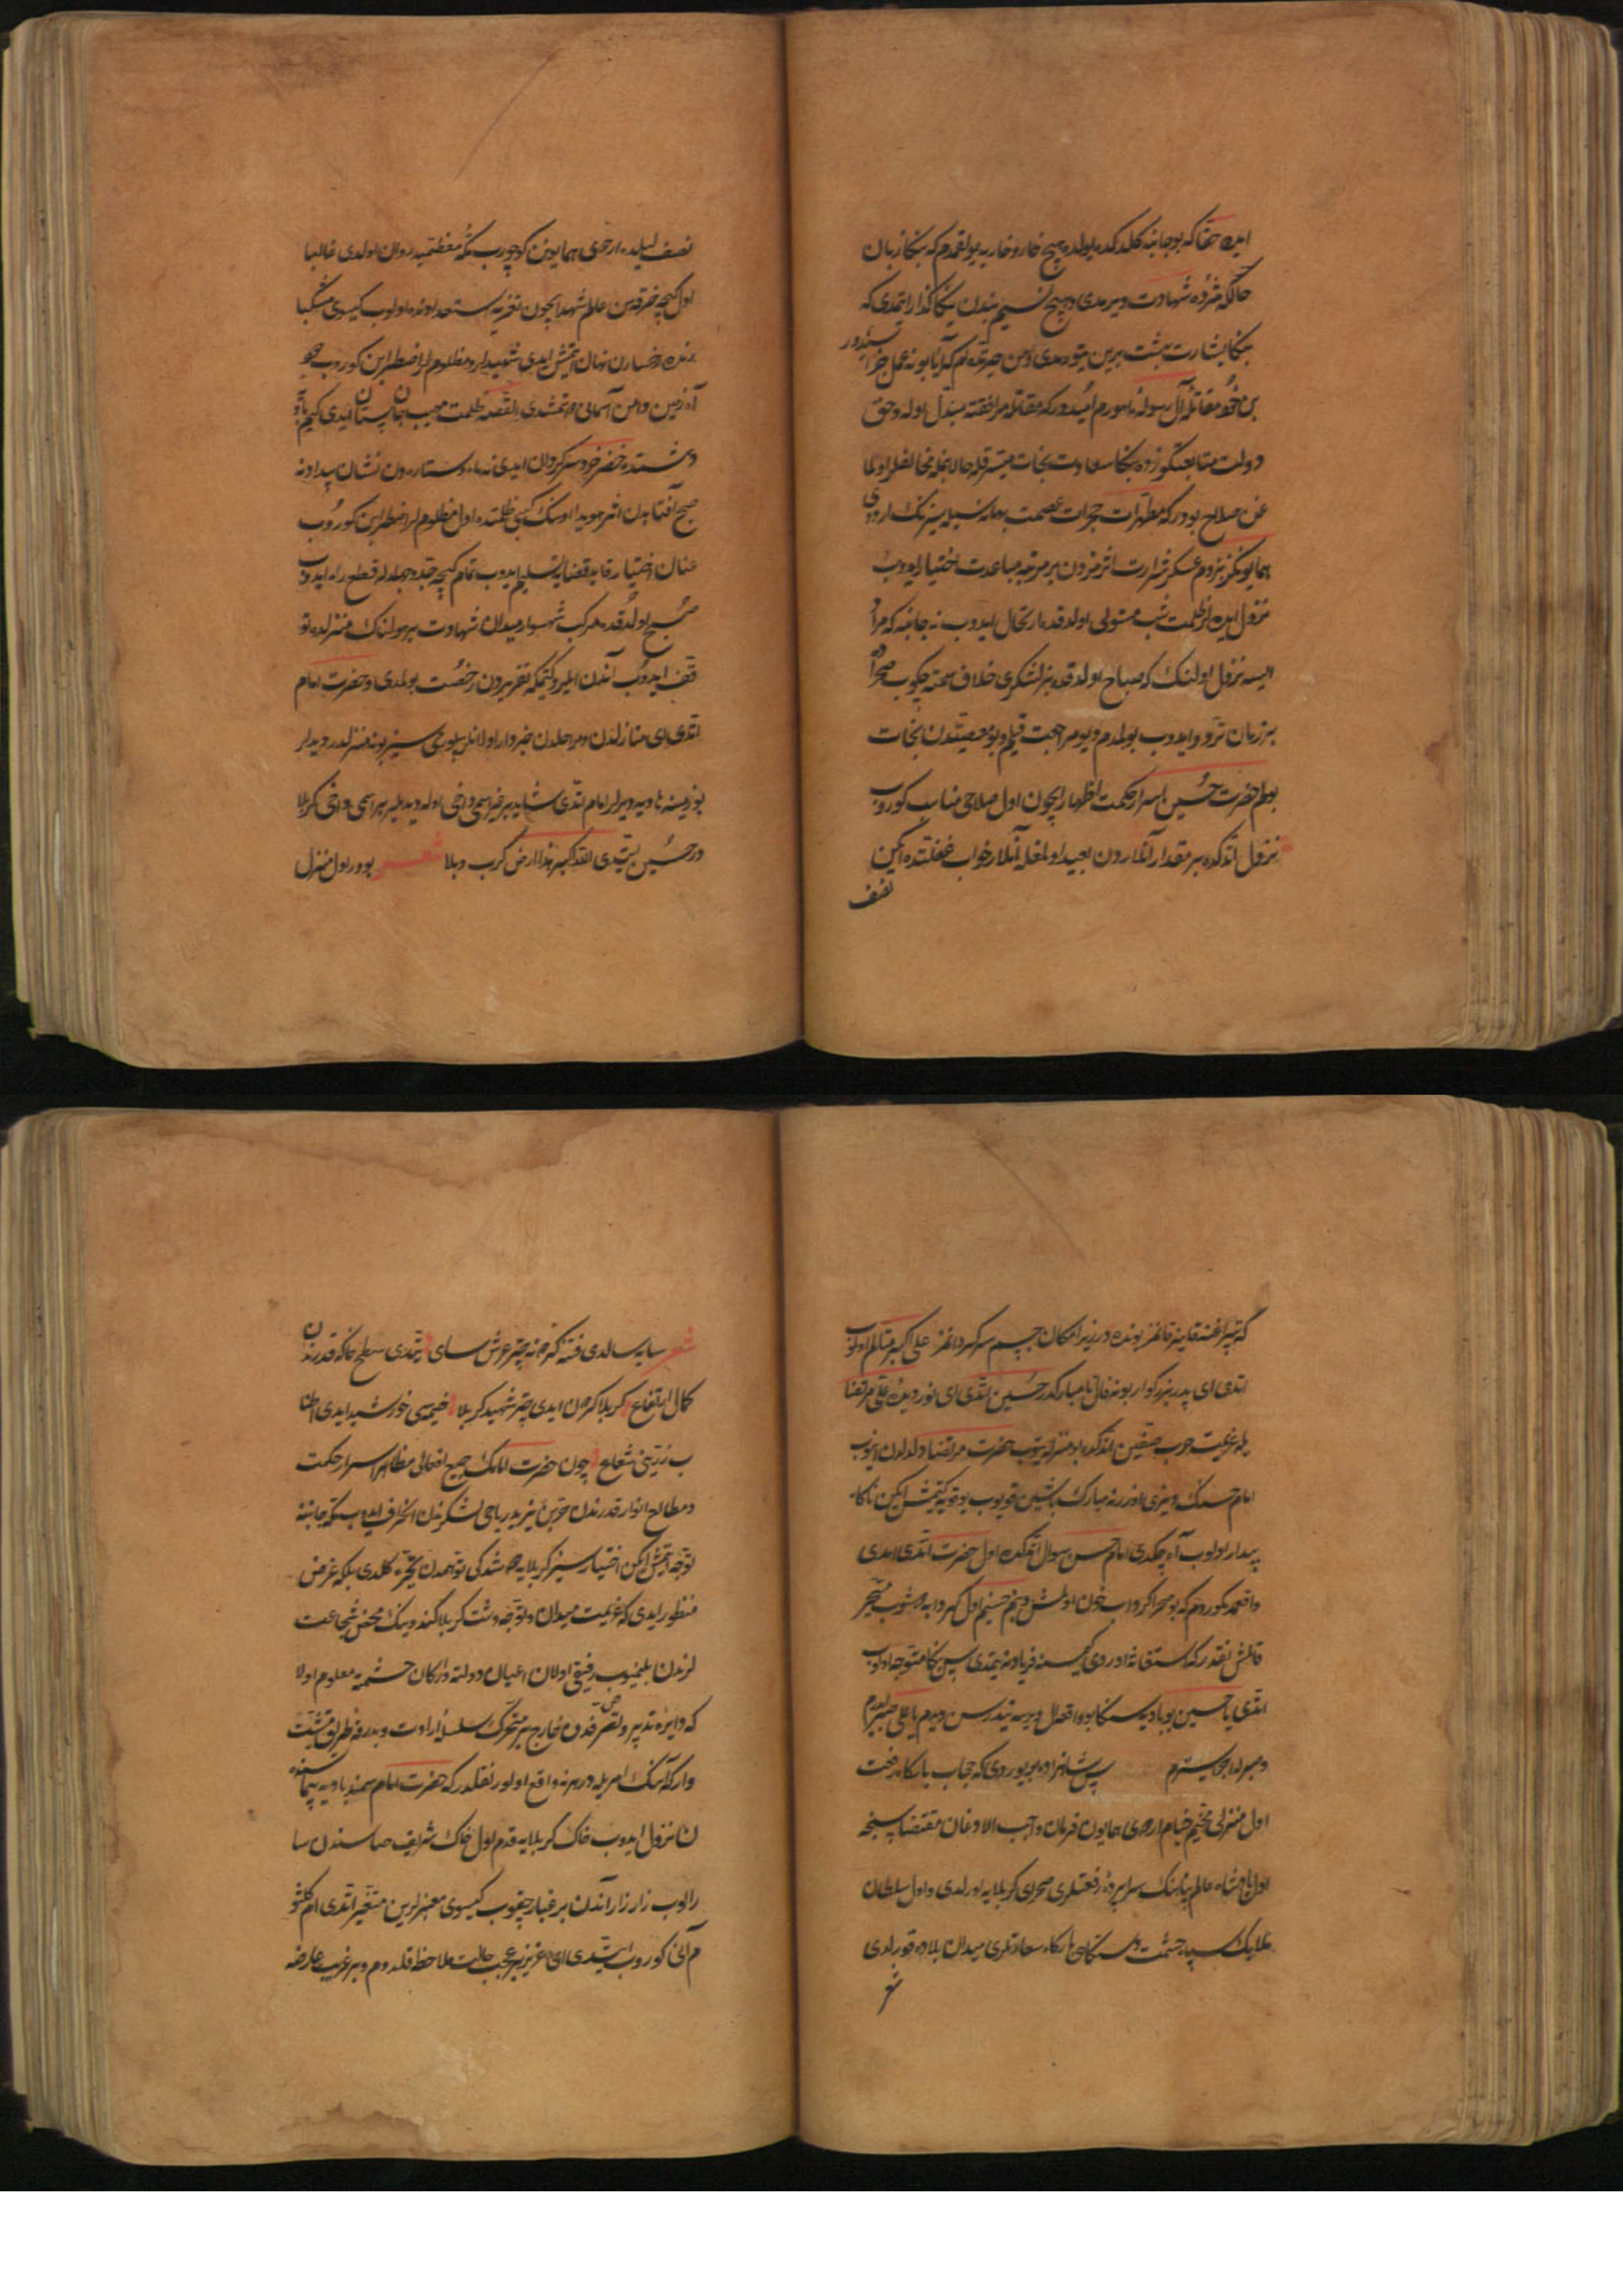 ایدن حقا که بو جانبه کلدکده یولده هیچ خار و خاره یه یولقمدم که بنکا زبان
حالله مژده شهادت ویرمدی و هیچ نسیم بندن یکا کذار ایتمدی که
بنکا بشارت بهشت برین یتورمدی و من حیرتده ام که آیا بونه عمل جزاسیدور
بن خود مقاتله آل رسوله مامورم امیددر که مقاتله مرافقته مبدل اوله و حق
دولت متابعتکوزده بنکا سعادت نجات میسر قله حالا بنمله مخالفلر اولما
غن صلاح بودر که مطهرات حجرات عصمت بهانه سیله سیزنک اردوی
همایونکز بزوم عسکر شرارت اثرمزدن بر مرتبه مباعدت اختیار ایدوب
نزول ایدن لر ظلمت شب مستولی اولدقده ارتحال ایدوب نه جانبه که مراد
ایسه نزول اولنک که صباح اولدقده بز لشکری خلاف سمته چکوب صحراده
بر زمان تردد ایدوب بولمدم دیو مراجعت قیلم و بو معصیتدن نجات
بولم حضرت حسین اسرار حکمت اظهار ایچون اول صلاحی مناسب کوروب
نزول اتدکده بر مقدار آنلاردن بعید اولمغله آنلار خواب غفلتده ایکن
نصف
نصف لیلده اردوی همایونن کوچورب مکه معظمه یه روان اولدی غالبا
اول کیچه خرقه سن عالم شهدا ایچون تعزیه مستعد اولوب کیسوی مشکبا
رخسارن نهان اتمش ایدی شهیدلر و مظلوملر اضطرابن کوروب
آه زمین دامن آسمانی دوتمشدی القصه ظلمت مهیب جان ستان ایدی کیم
دشتده خضر خرد سرکردان ایدی نه ماه و ستاره دن نشان پیدا و نه
صبح آفتابدن اثر هویدا اوسنک کبی ظلمتده اول مظلوملر اضطرابن کوروب
عنان اختیار قاید قضایه تسلیم ایدوب تمام کیچه جد و جهدله قطع راه ایدوب
صبح اولدقده مرکب شهسوار میدان شهادت بر هولناک منزلده تو
قف ایدوب آندن ایلرو کتمکه تقدیردن رخصت بولمدی و حضرت امام
اتدی ای منازلدن و مراحلدن خبردار اولانلر بلورمی سیز بو نه منزلدر دیدیلر
بو زمینه ماریه دیرلر امام اتدی شاید بر غیر اسمی داخی اوله دیدیلر بر اسمی داخی کربلا
در حسین ایتدی الله اکبر هذا ارض کرب و بلا شعر بودر اول منزل
که تیر اغنه قانمز بونده دریزر امکان جسم سرکردانمز علی اکبر متالم اولوب
اتدی ای پدر بزرکوار بو نه فال نامبارکدر حسین اتدی ای نور دیده علی مرتضا
یله عزیمت حرب صفین اتدکده بو منزله یتوب حضرت مرتضا دلدلدن اینوب
امام حسنک دیزی اوزرنه مبارک باشین قویوب یوقویه کیتمش ایکن ناکاه
بیدار اولوب آه چکدی امام حسن سوال اتدکده اول حضرت اتدی ایدی
واقعه مده کوردم که بو صحرا کرداب خون اولمش و بنم حسینم اول کردابه دوشوب متحیر
قالمش نقدر که استغاثه ادردی کیمسنه فریادنه یتمدی پس بنکا متوجه اولوب
اتدی یا حسین بو بادیه ده سنکا بو واقعه ال ویرسه نیدرسن دیدم یا علی صبر ایدرم
و صبردن اجر یسترم پس شاهزاده بیوردی که حجاب بارکاه رفعت
اول منزلی مخیم خیام اردوی همایون قیلدن فرمان واجب الاذعان مقتضاسنجه
اول پادشاه عالم پناهنک سراپرده رفعتلری صحرای کربلایه اورلدی و اول سلطان
ملایک سپاه حشمت دستکاهی بارکاه سعادتلری میدان بلاده قورلدی
شعر
شعر سایه سالدی فتنه کرمنه چتر عرش سای یتمدی سطح خاکه قدرندن
کمال ارتفاع کربلا کردن ایدی چتر شهید کربلا خیمه سی خورشید ایدی اطنا
ب زرینی شعاع چون حضرت امامک جمیع افعالی مظاهر اسرار حکمت
و مطالع انوار قدرتدن حر بن یزید ریاحی لشکرندن انحراف ایدوب مکه جانبنه
توجه اتمش ایکن اختیارسیز کربلایه دوشدکی توهمدن تحیره کلدی بلکه غرض
منظور ایدی که عزیمت میدان و توجه دشت کربلا کندونک محض شجاعت
لرندن بلنمیوب رفیقی اولان اعیان دولته و ارکان حشمته معلوم اولا
که دایره تدبیر و تصرفدن خارج بر محرک سلسله ارادت و بدرقه طریق مشیت
وار که آنک امریله درهر نه واقع اولور نقلدر که حضرت امام سمند بادیه پیماسنده
ن نزول ایدوب خاک کربلایه قدم اول خاک شریف صاسندن سا
رالوب زار زار آندن بر غبار چقوب کیسوی معنبرلرین متغیر اتدی ام کلثو
م آنی کوروب ایتدی ای عزیز بر عجب حالت ملاحظه قلدوم و بر غریب عارضه